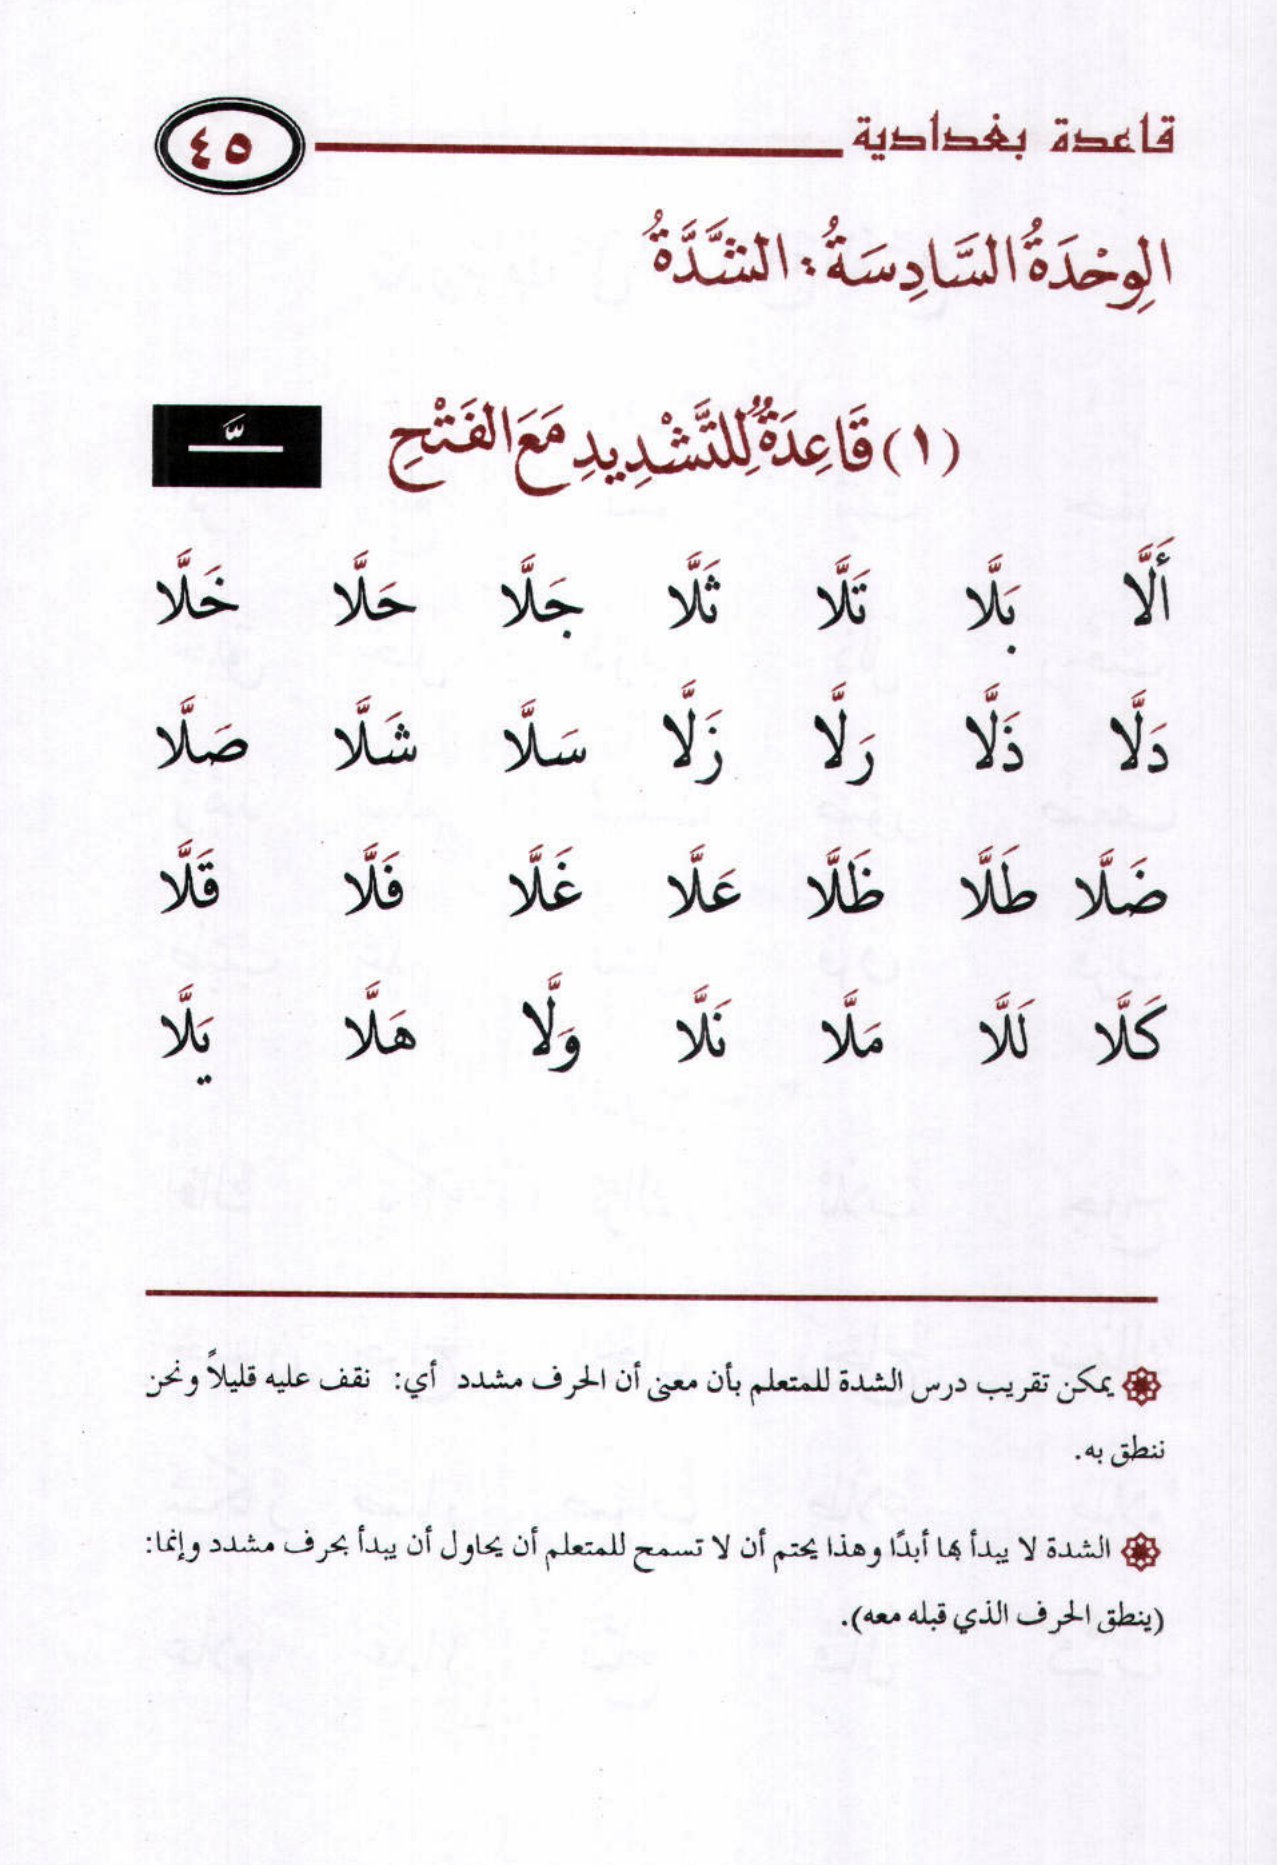 قاعدة بغدادية ٤٥
الوِحْدَةُ السَّادِسَةُ : الشَّدَّةُ
(١) قَاعِدَةٌ لِلتَّشْدِيدِ مَعَ الفَتْحِ ـَّ
أَلَّا بَلَّا تَلَّا ثَلَّا جَلَّا حَلَّا خَلَّا
دَلَّا ذَلَّا رَلَّا زَلَّا سَلَّا شَلَّا صَلَّا
ضَلَّا طَلَّا ظَلَّا عَلَّا غَلَّا فَلَّا قَلَّا
كَلَّا لَلَّا مَلَّا نَلَّا وَلَّا هَلَّا يَلَّا
يمكن تقريب درس الشدة للمتعلم بأن معنى أن الحرف مشدد أي: نقف عليه قليلاً ونحن
ننطق به.
الشدة لا يبدأ بها أبدًا وهذا يحتم أن لا تسمح للمتعلم أن يحاول أن يبدأ بحرف مشدد وإنما:
(ينطق الحرف الذي قبله معه).